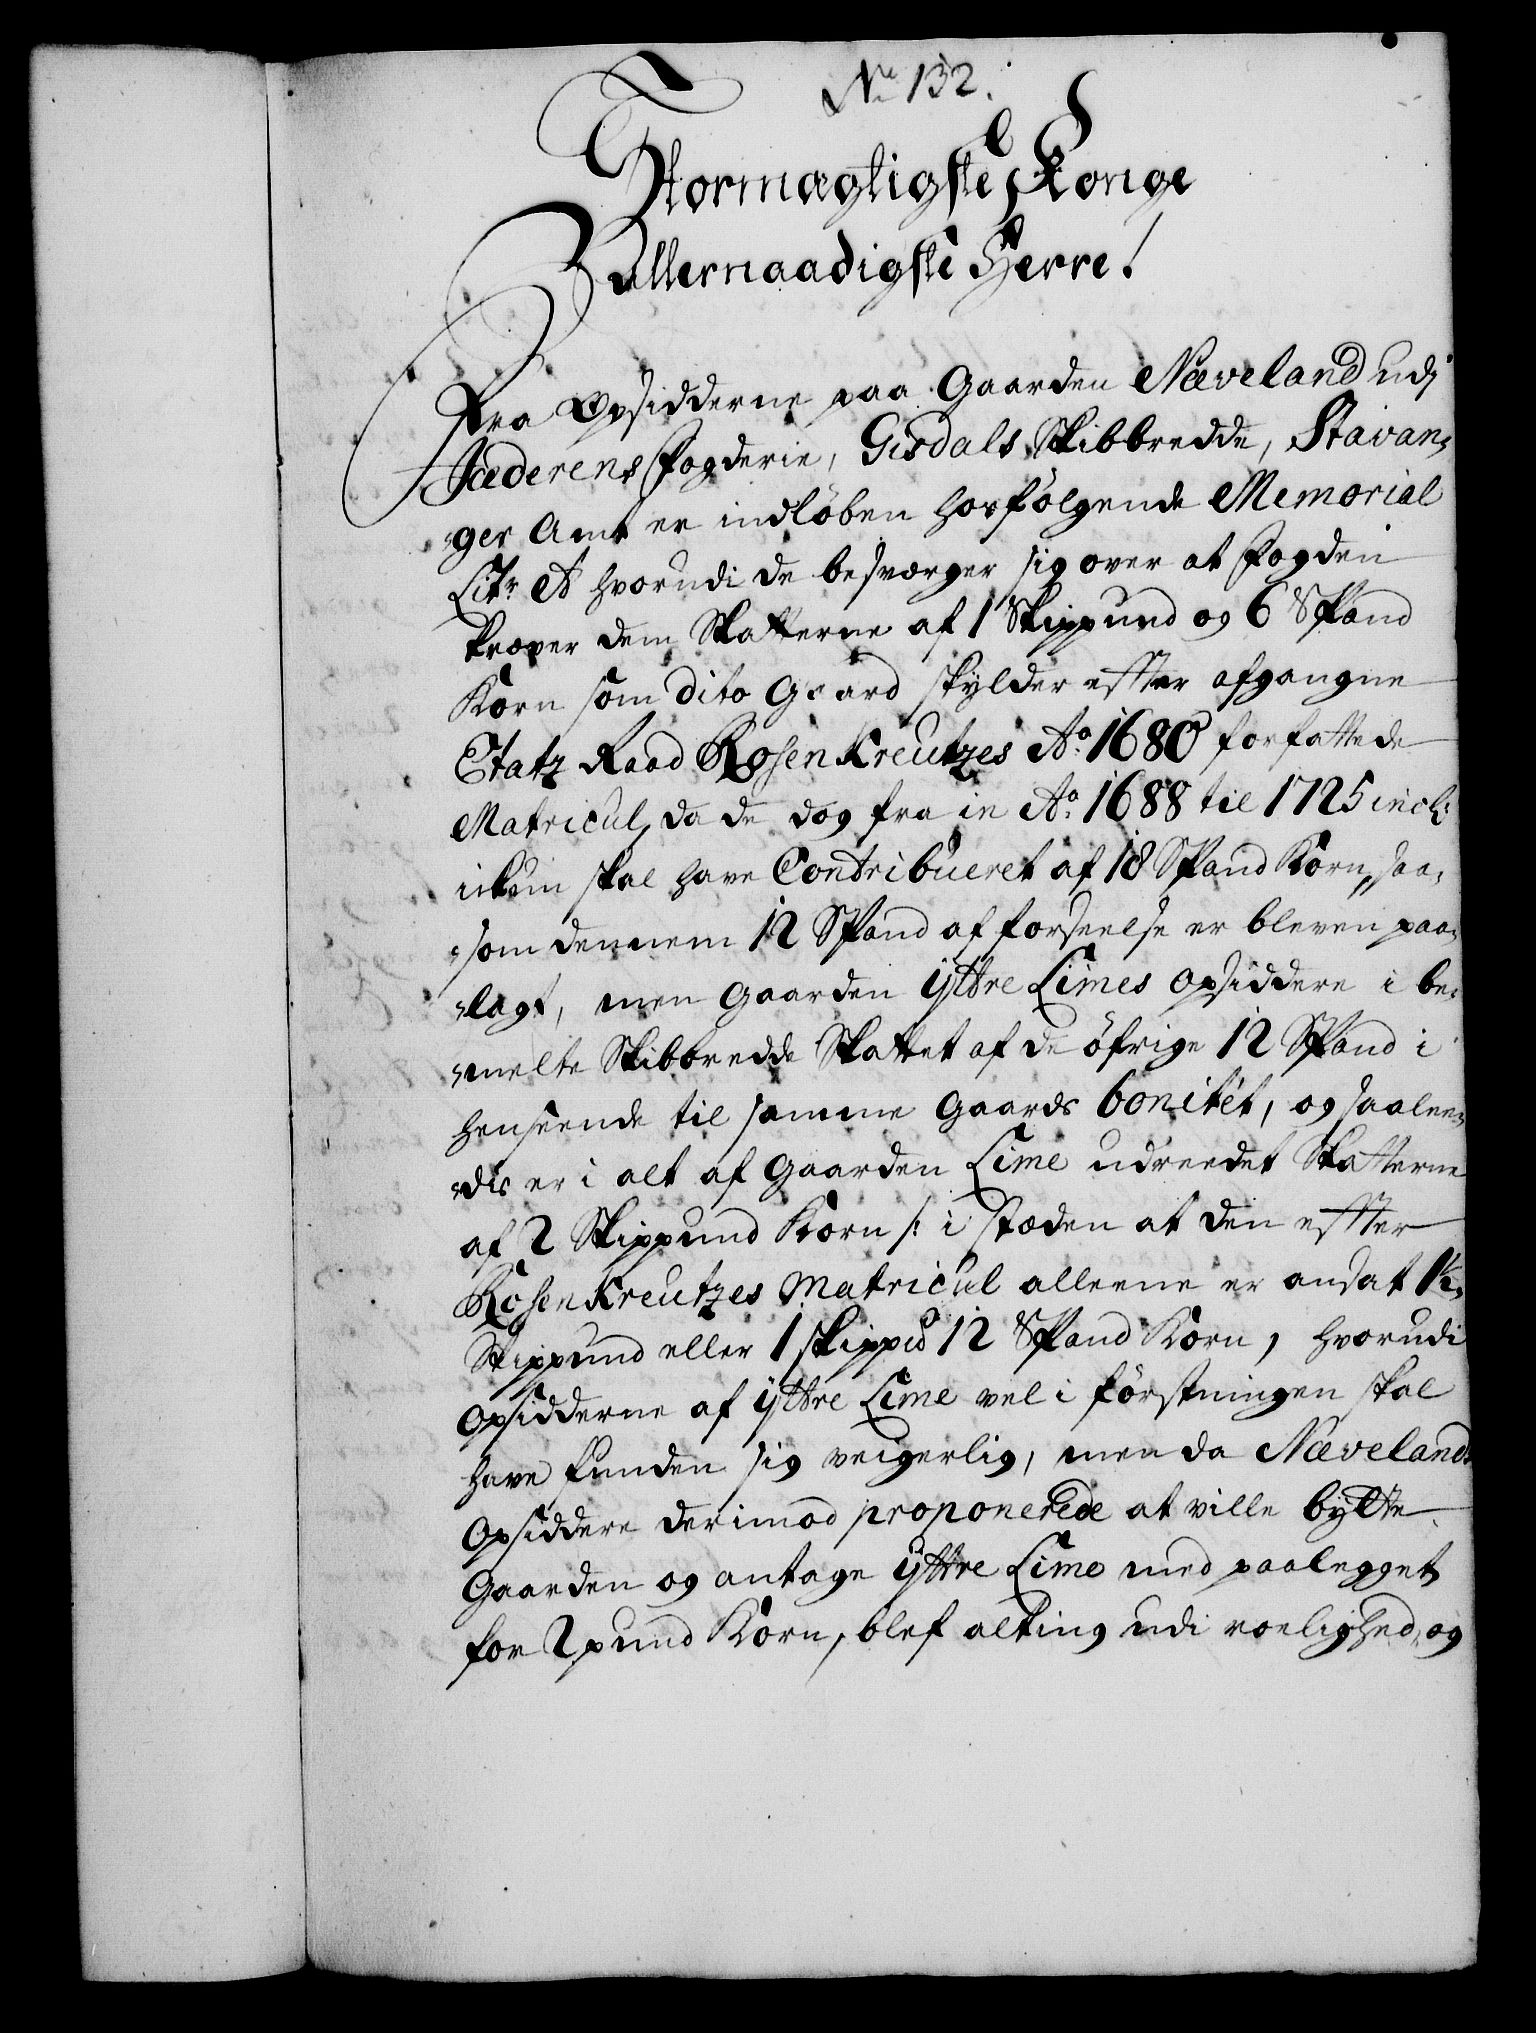 No 132.
Stormægtigste Konge
Allernaadigste Herre!
Fra Opsidderne paa Gaarden Næveland udj
Jæderens Fogderie, Gisdals Skibbredde, Stavan„
„ger Amt er indløben hosfølgende Memorial
Litr A hvorudi de besværger sig over at Fogden
kræver dem Skatterne af 1 Skippund og 6 Spand
Korn som dito Gaard skylder effter afgangne
Etatz Raad Rosenkreutzes Ao 1680 forfattede
Matricul, da de dog fra in Ao 1688 til 1725 incl:
ickun skal have Contribueret af 18 Spand Korn, saa„
„som dennem 12 Spand af forseelse er bleven paa„
„lagt, men Gaarden ÿttre Limes opsiddere i be„
„melte Skibbredde Skattet af de øfrige 12 Spand i
henseende til samme Gaards bonitét, og saalee„
„dis er i alt af Gaarden Lime udreedet Skatterne
af 2 Skippund Korn /: i stæden at den effter
Rosenkreutzes Matricul alleene er ansat 1½
Skippund eller 1 skippd 12 Spand Korn, hvorudi
Opsidderne af ÿttre Lime vel i førstningen skal
have funden sig veigerlig, men da Nævelands
Opsiddere derimod proponerede at ville bÿtte
Gaarden og antage ÿttre Lime med paalegget
for 2 pund Korn, blef alting udi roelighed, og